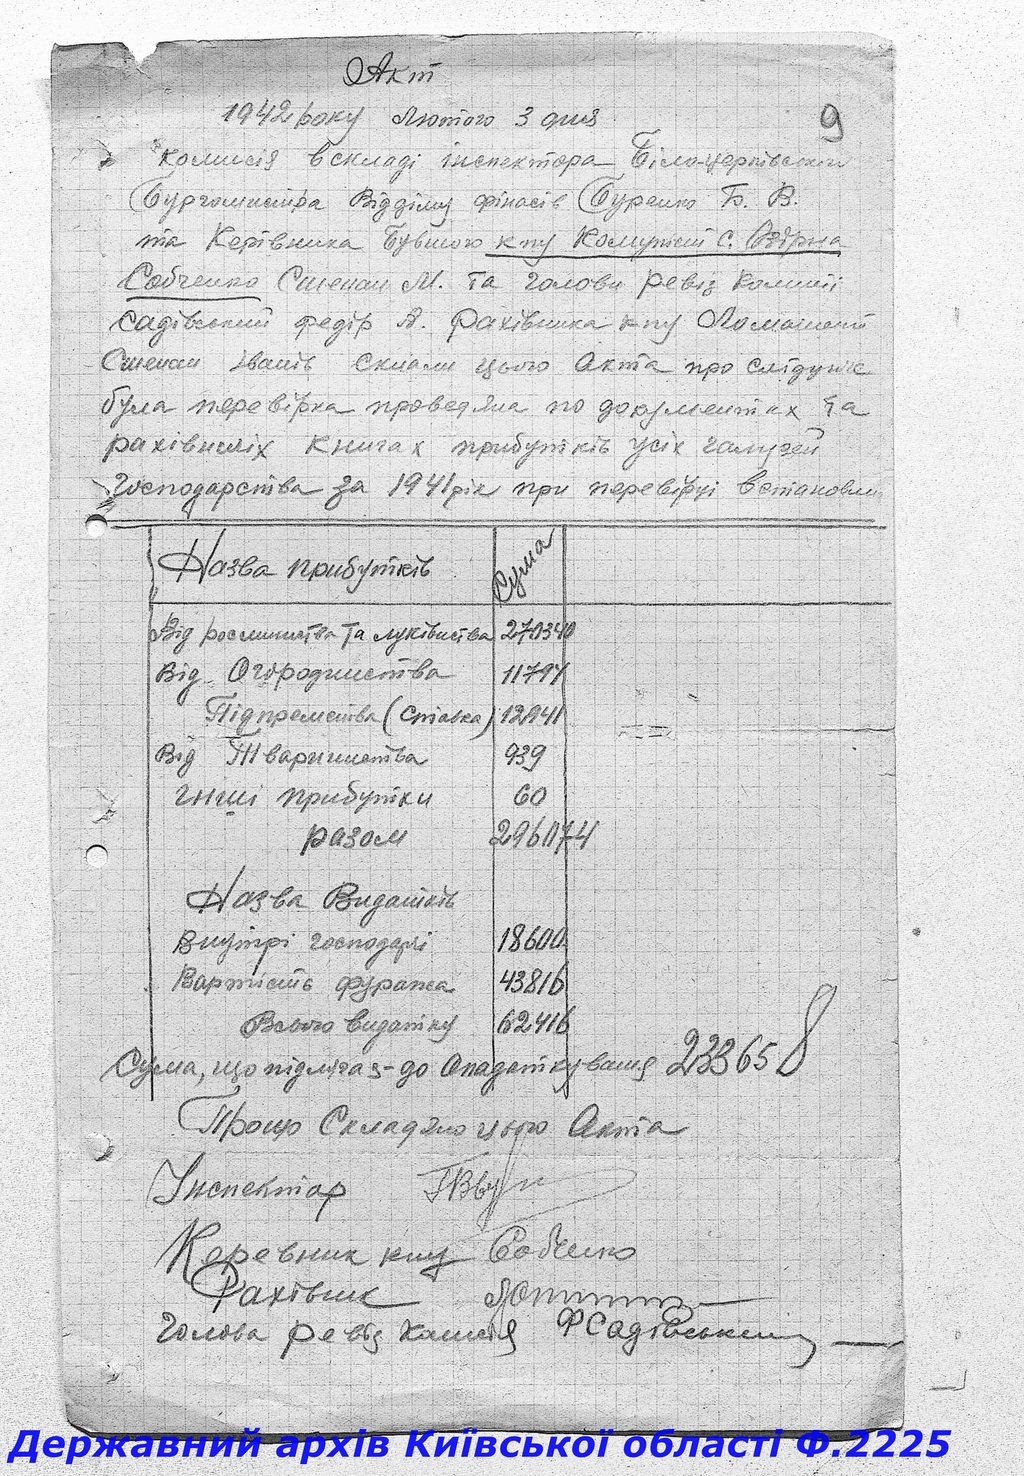 Акт
1942 року Лютого 3 дня
9
Комисія в складі інспектора Білоцерківського
Бургомистра Відділу фінасів Буренко Б. В.
та Керівника Бувшою кпу Комуністі с. Озірна
Собченко Степан М. та голови ревіз комиїї
Садівський федір А. Рахівника кпу
Степан Іванів склали цього Акта про слідуюче
була перевірка проведяна по документах та
рахівниліх книгах прибутків усіх галузей
господарства за 1941 рік при перевірці встановли
Назва прибутків Сума
Від рослинитва та луківитва 270340
Від Огородниства 11794
Підпремства (Ставка) 12941
Від Твариниства 939
інші прибутки 60
разом 296074
Назва Видатків
Внутрі господарі 18600
Вартість фуража 43816
Всього видатку 62416
Сума, що підлягає до Опадаткування 233658
Прощо Складяно цього Акта
Інспектор
Керевник кпу Собченко
Рахівник
Голова ревіз Камисія ФСадівський
Державний архів Київської області Ф.2225